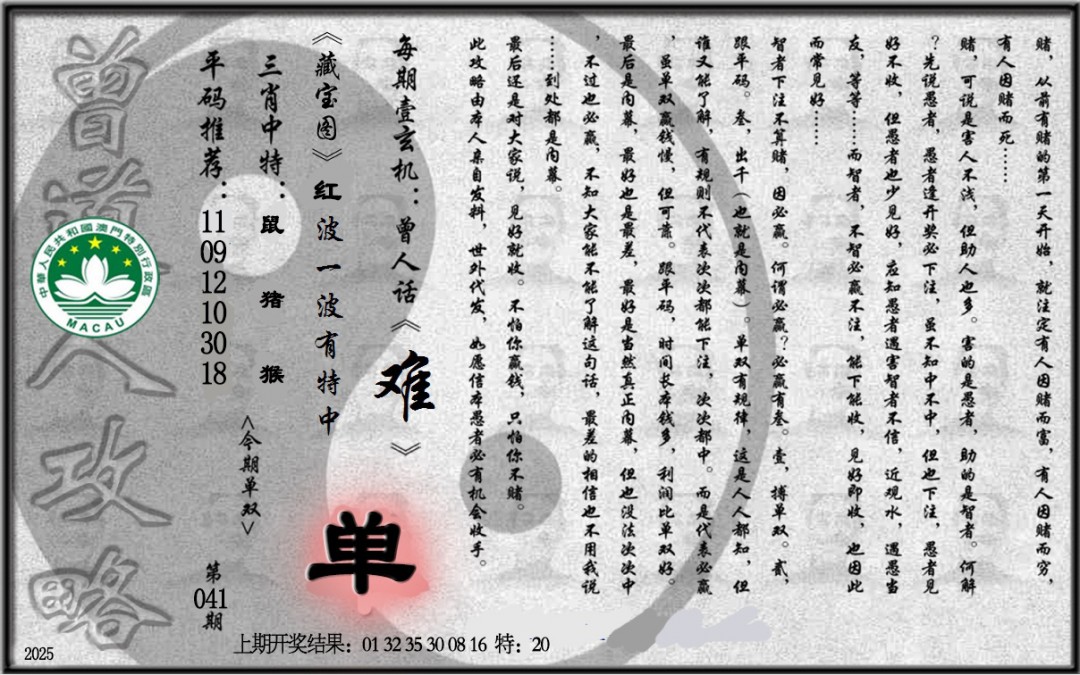 赌，从前有赌的第一天开始，就注定有人因赌而富，有人因赌而穷，
有人因赌而死……
赌，可说是害人不浅，但助人也多。害的是愚者，助的是智者。何解
？先说愚者，愚者逢开奖必下注，虽不知中不中，但也下注，愚者见
好不收，但愚者也少见好，应知愚者遇害智者不信，近观水，遇愚当
友，等等……而智者，不智必赢不注，能下能收，见好即收，也因此
而常见好……
智者下注不算赌，因必赢。何谓必赢？必赢有叁。壹，搏单双。贰，
跟平码。叁，出千（也就是内幕）。单双有规律，这是人人都知，但
谁又能了解，有规则不代表次次都能下注，次次都中。而是代表必赢
，虽单双赢钱慢，但可靠。跟平码，时间长本钱多，利润比单双好。
最后是内幕，最好也是最差，最好是当然真正内幕，但也没法次次中
，不过也必赢，不知大家能不能了解这句话，最差的相信也不用我说
……到处都是内幕。
最后还是对大家说，见好就收。不怕你赢钱，只怕你不赌。
此攻略由本人亲自发料，世外代发，如愿信本愚者必有机会收手。
每期壹玄机：曾人话《难》
《藏宝图》红波一波有特中
三肖中特：鼠 猪 猴
<今期单双>
单
平码推荐：11 09 12 10 30 18
第041期
曾道人攻略
中華人民共和國澳門特別行政區
MACAU
上期开奖结果：01 32 35 30 08 16 特：20
2025